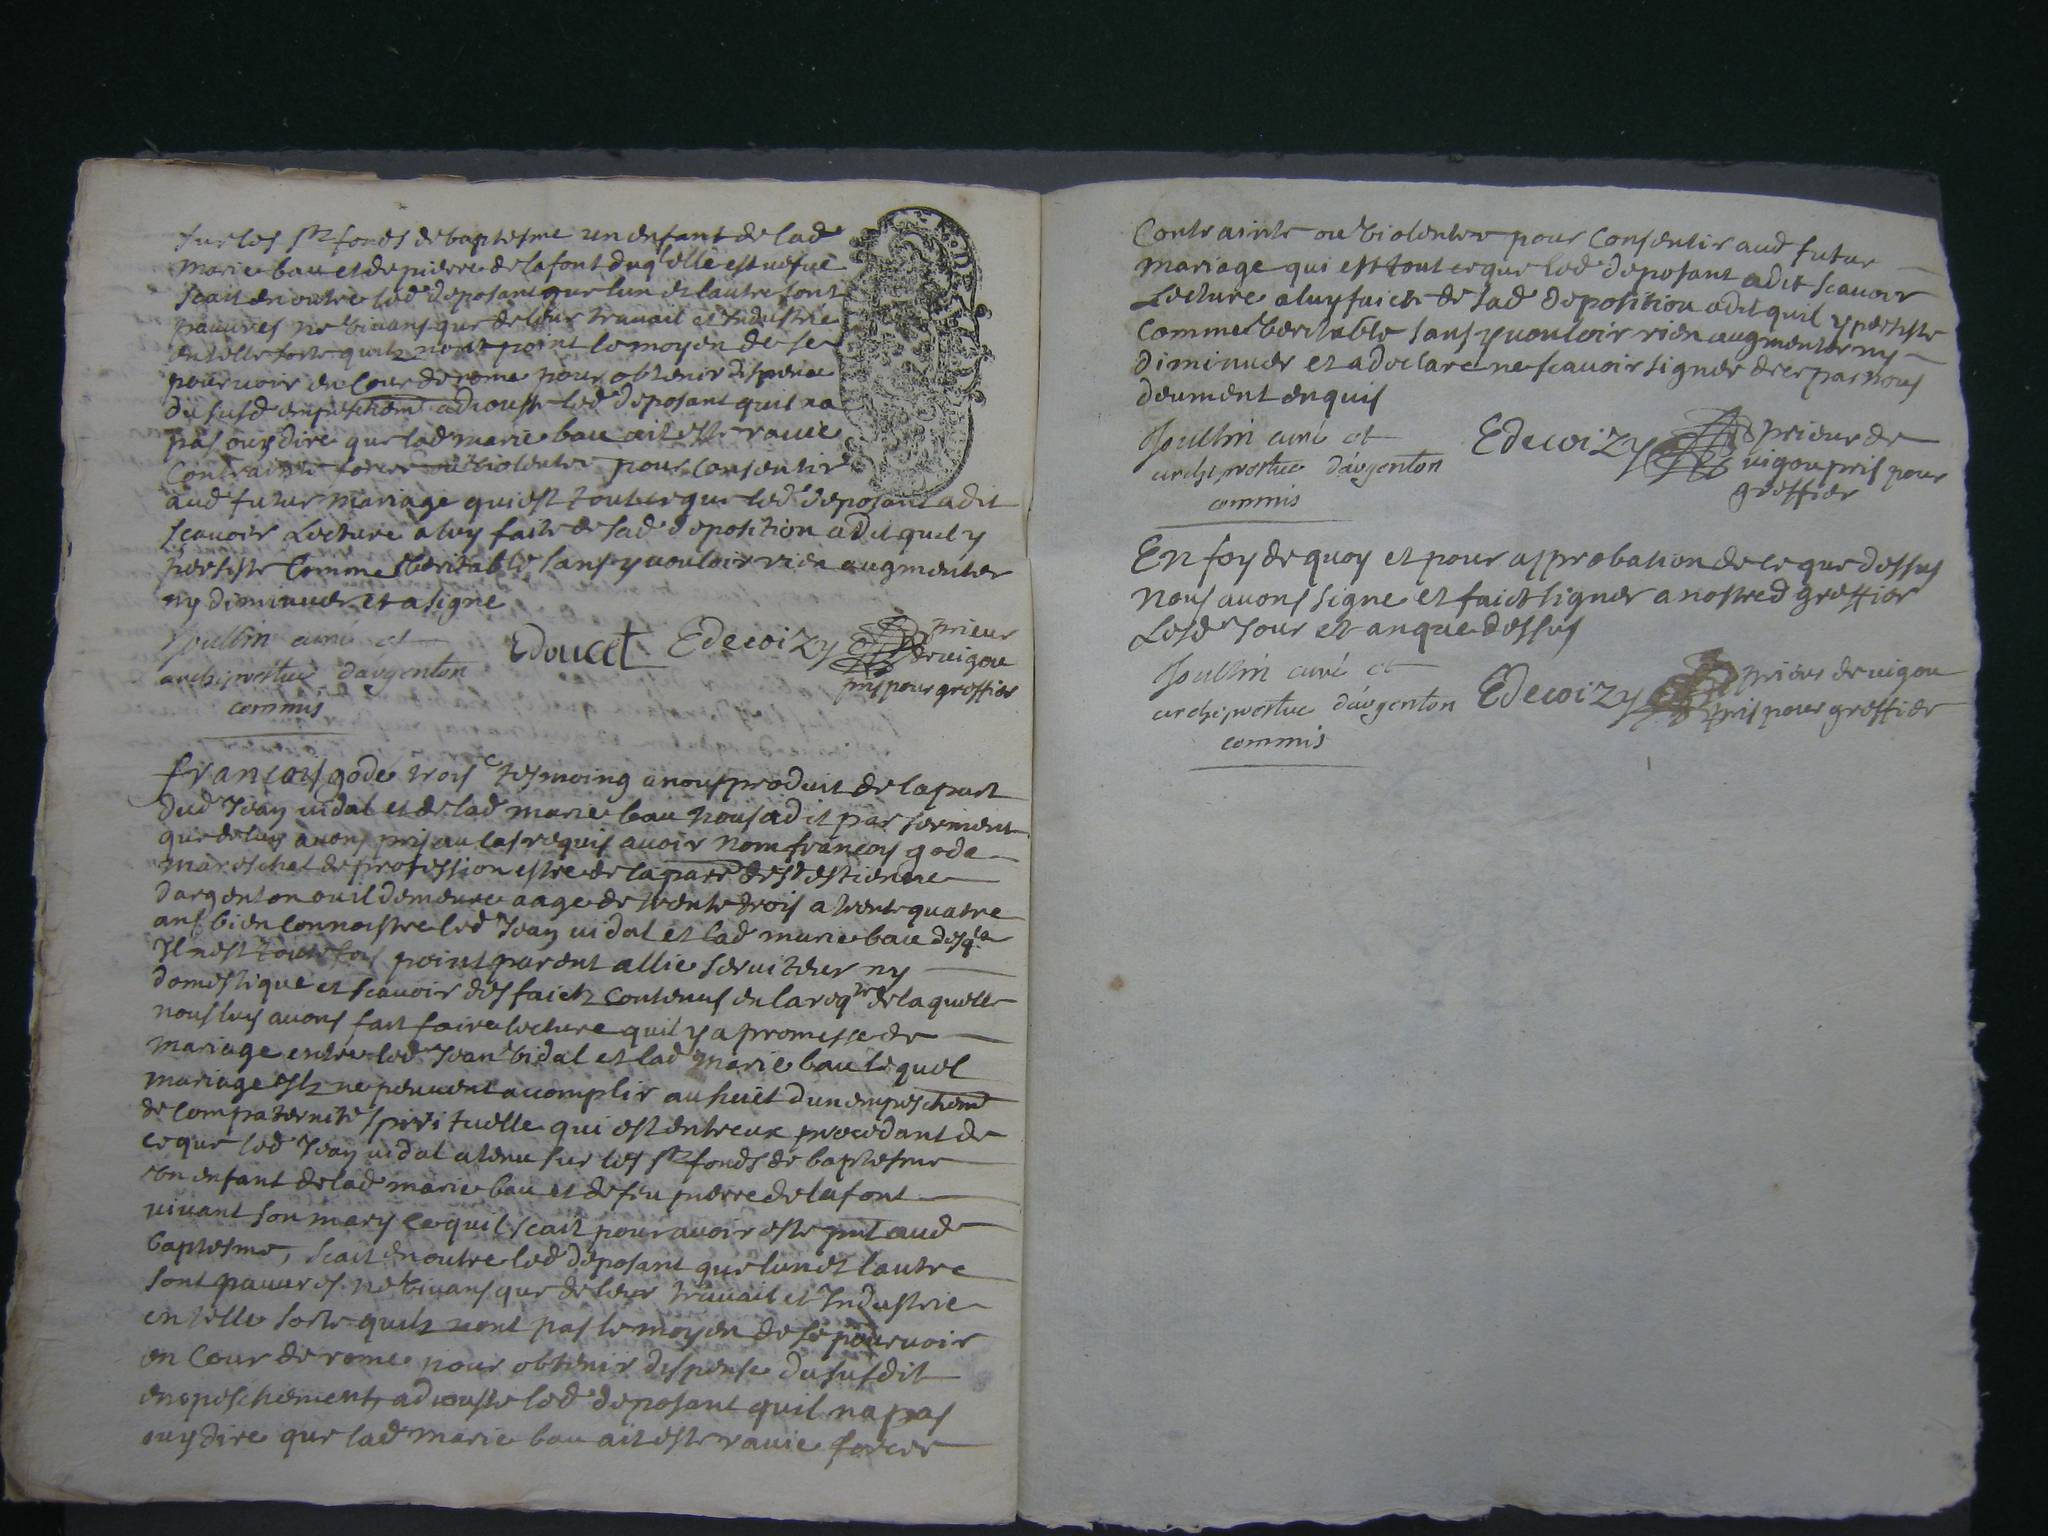 sur les sts fonds de baptesme un enfant de lad
marie bau et de pierre delafont duql elle est vefue
scait en outre led deposant que lun et lautre sont
pauvres ne vivans que de leur travail et Industrie
en telle sorte quilz nont point le moyen de se
pourvoir en Cour de rome pour obtenir dispence
du susd empeschemt adiouste led deposant quil na
pas ouy dire que lad marie bau ait este ravie
Contrainte forcee ou violentee pour Consentir
aud futur mariage qui est tout ce que led deposant a dit
scavoir Lecture a luy faite de sad deposition a dit quil y
persiste Comme veritable sans y vouloir rien augmenter
ny diminuer et a signe
Joullin curé et
archiprestre dargenton
commis
Edoucet
Edecoizy prieur
de vigou
pris pour greffier
francois gode trois e tesmoing a nous produit de la part
dud Jean vidal et de lad marie bau Nous a dit par serment
que de luy avons pris au cas requis avoir Nom francois gode
mareschal de profession estre de la parr de st estienne
dargenton ou il demeure aage de trente trois a trente quatre
ans bien connoistre led Jean vidal et lad marie bau desqls
Il nest toutefois point parent allie serviteur ny
domestique et scavoir des faicts Contenus en la reqte de laquelle
nous luy avons fait faire lecture quil y a promesse de
mariage entre led Jean vidal et lad marie bau lequel
mariage ilz ne peuvent acomplir au suict dun empeschemt
de Compaternité spirituelle qui est entreux procedant de
ce que led Jean vidal a tenu sur les sts fonds de baptesme
un enfant de lad marie bau et de feu pierre delafont
vivant son mary ce quil scait pour avoir este pnt aud
baptesme, scait en outre led deposant que lun et lautre
sont pauvres ne vivans que de leur travail et Industrie
en telle sorte quilz nont pas le moyen de se pourvoir
en Cour de rome pour obtenir dispense du susdit
empeschement, adiouste led deposant quil na pas
ouy dire que lad marie bau ait este ravie forcee
Contrainte ou violentee pour Consentir aud futur
mariage qui est tout ce que led deposant a dit scavoir
Lecture a luy faicte de sad deposition a dit quil y persiste
Comme veritable sans y vouloir rien augmenter ny
diminuer et a declare ne scavoir signer de ce par nous
deument enquis
Joullin curé et
archiprestre d'argenton
commis
Edecoizy prieur de
vigou pris pour
greffier
En foy de quoy et pour approbation de ce que dessus
Nous avons signe et faict signer a nostred greffier
Lesd Jour et an que dessus
Joullin curé et
archiprestre d'argenton
commis
Edecoizy prieur de vigou
pris pour greffier